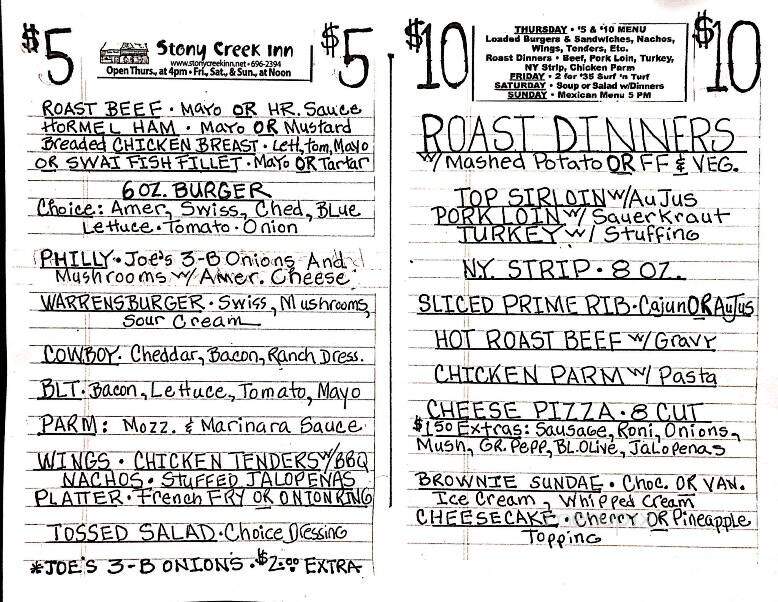 $5
Stony Creek Inn
www.stonycreekinn.net • 696-2394
Open Thurs., at 4pm • Fri., Sat., & Sun., at Noon
$5
ROAST BEEF • Mayo OR HR. Sauce
HORMEL HAM • Mayo OR Mustard
Breaded CHICKEN BREAST • Lett, tom, Mayo
OR SWAI FISH FILLET • Mayo OR Tartar
6 OZ. BURGER
Choice: Amer, Swiss, Ched, BLue
Lettuce • Tomato • Onion
PHILLY • Joe's 3-B Onions And
Mushrooms w/ Amer. Cheese
WARRENSBURGER • Swiss, Mushrooms,
Sour Cream
COWBOY • Cheddar, Bacon, Ranch Dress.
BLT • Bacon, Lettuce, Tomato, Mayo
PARM: Mozz. & Marinara Sauce
WINGS • CHICKEN TENDERS w/BBQ
NACHOS • STUFFED JALOPENAS
PLATTER • French FRY OR ONION RING
TOSSED SALAD • Choice Dressing
*JOE'S 3-B ONIONS • $2.00 EXTRA
$10
THURSDAY • $5 & $10 MENU
Loaded Burgers & Sandwiches, Nachos,
Wings, Tenders, Etc.
Roast Dinners • Beef, Pork Loin, Turkey,
NY Strip, Chicken Parm
FRIDAY • 2 for $35 Surf 'n Turf
SATURDAY • Soup or Salad w/Dinners
SUNDAY • Mexican Menu 5 PM
$10
ROAST DINNERS
w/ Mashed Potato OR FF & VEG.
TOP SIRLOIN w/Au Jus
PORK LOIN w/ Sauerkraut
TURKEY w/ Stuffing
NY. STRIP • 8 OZ.
SLICED PRIME RIB • Cajun OR AuJus
HOT ROAST BEEF w/ Gravy
CHICKEN PARM w/ Pasta
CHEESE PIZZA • 8 CUT
$1.50 Extras: Sausage, Roni, Onions,
Mush, GR. Pepp, BL. Olive, Jalopenas
BROWNIE SUNDAE • Choc. OR VAN.
Ice Cream, Whipped Cream
CHEESECAKE • Cherry OR Pineapple
Topping